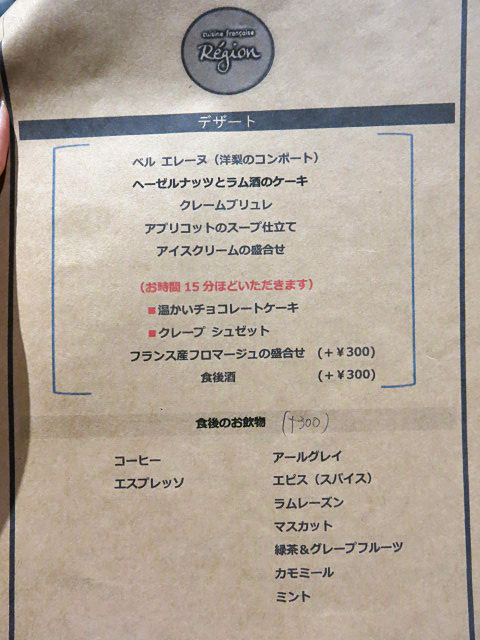 cuisine française
Région
デザート
ベル エレーヌ（洋梨のコンポート）
ヘーゼルナッツとラム酒のケーキ
クレームブリュレ
アプリコットのスープ仕立て
アイスクリームの盛合せ
（お時間 15 分ほどいただきます）
■温かいチョコレートケーキ
■クレープ シュゼット
フランス産フロマージュの盛合せ （＋￥300）
食後酒 （＋￥300）
食後のお飲物 (+300)
コーヒー
エスプレッソ
アールグレイ
エピス（スパイス）
ラムレーズン
マスカット
緑茶＆グレープフルーツ
カモミール
ミント